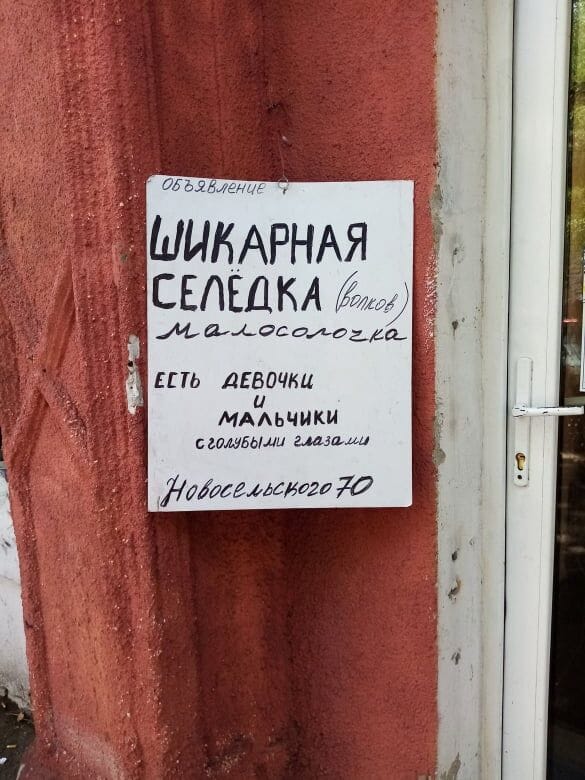 ОБЪЯВЛЕНИЕ
ШИКАРНАЯ
СЕЛЁДКА (волков)
малосолочка
ЕСТЬ ДЕВОЧКИ
И
МАЛЬЧИКИ
с голубыми глазами
Новосельского 70